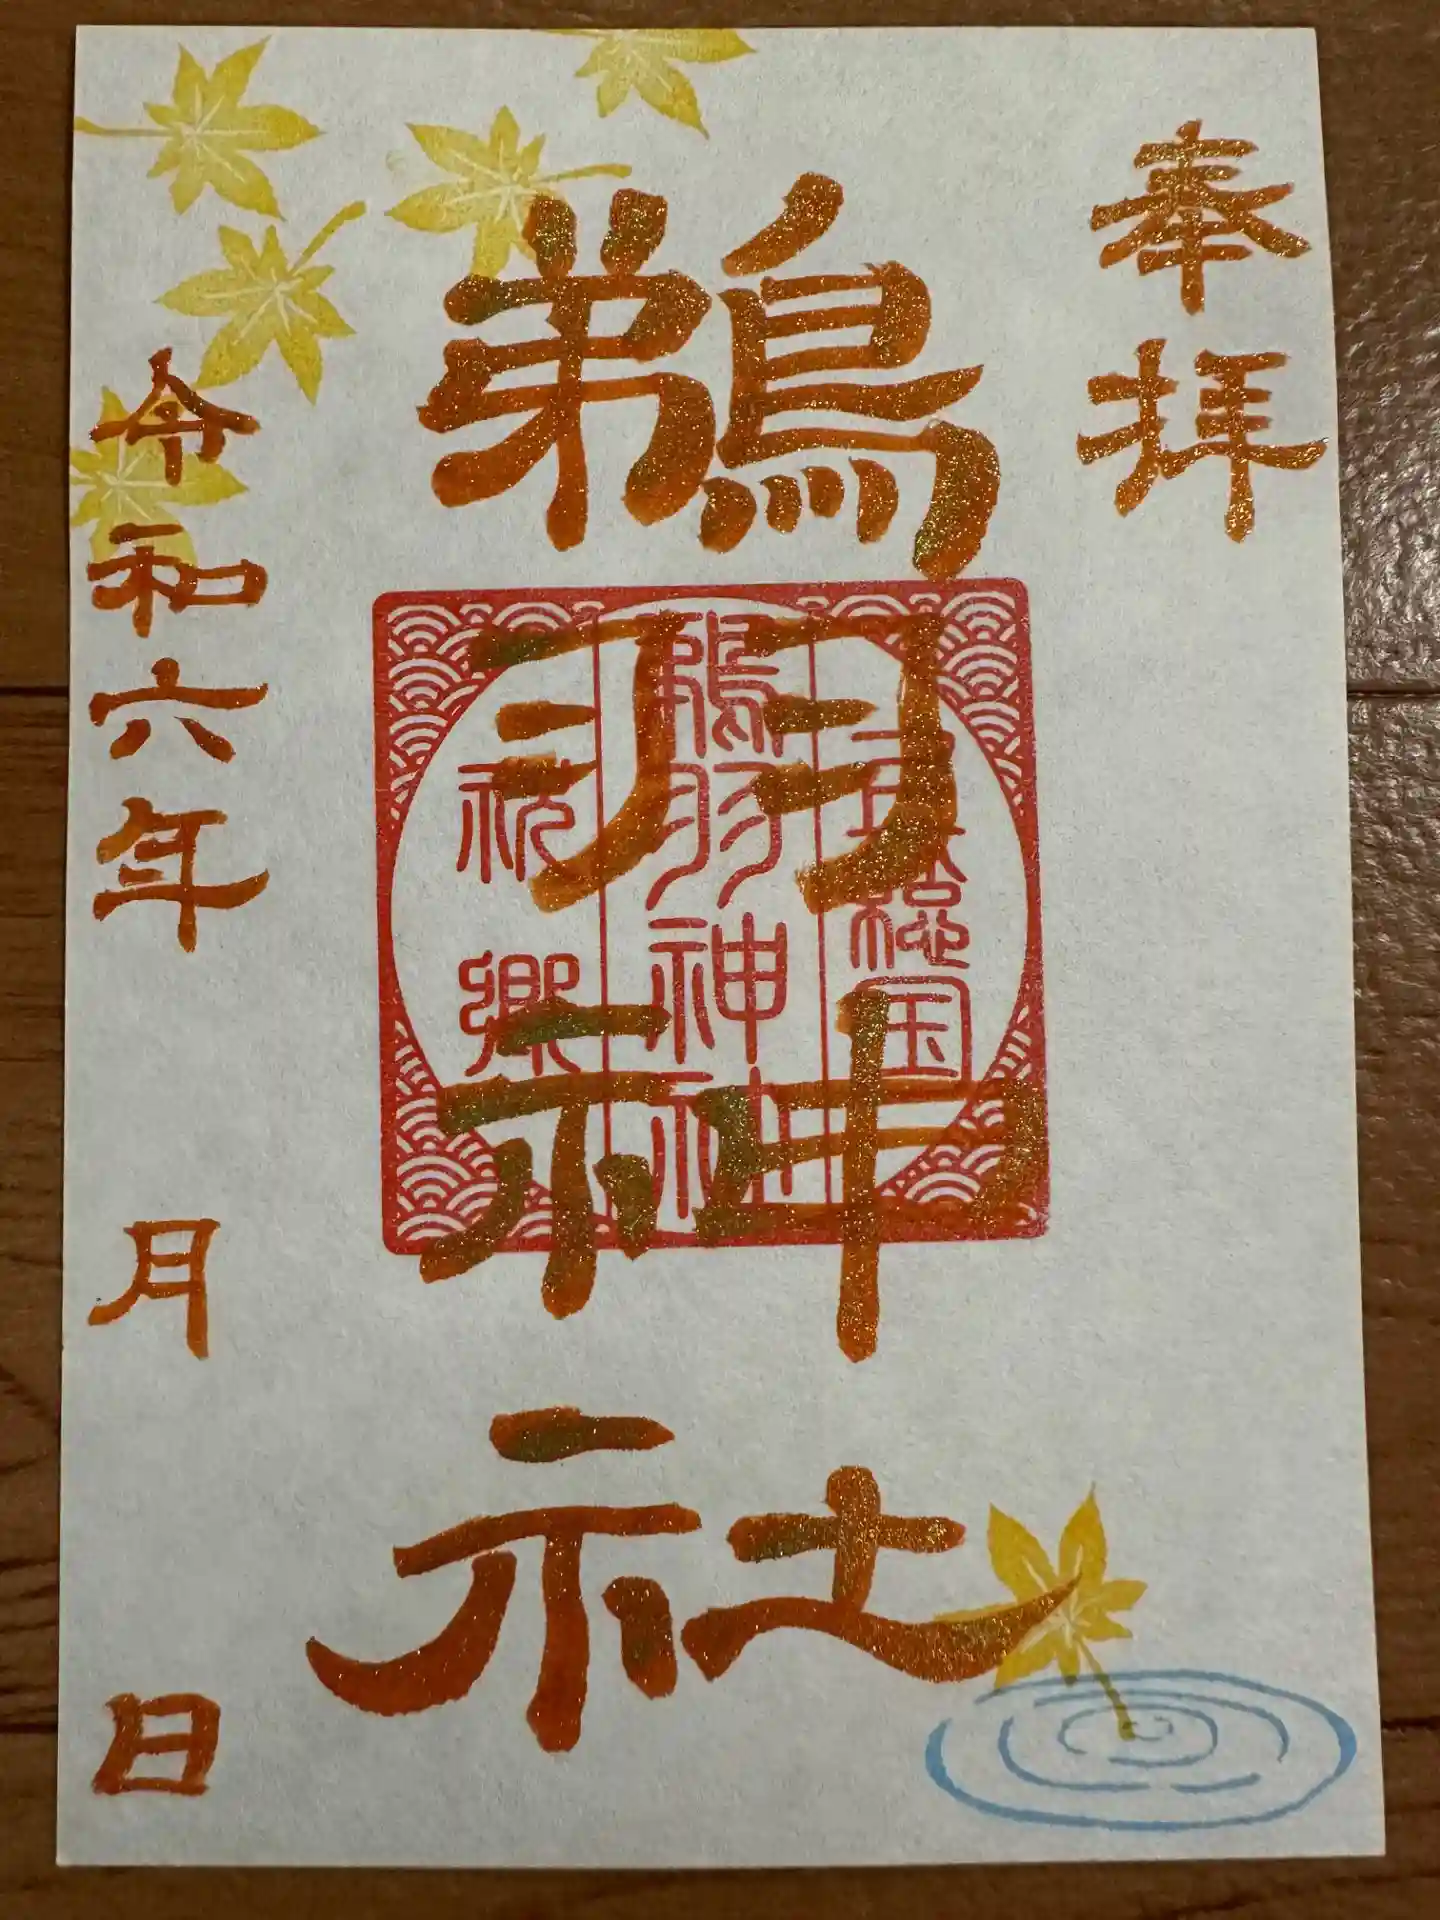 奉拝
鵜羽神社
総国
鵜羽神社
郷
令和六年 月 日